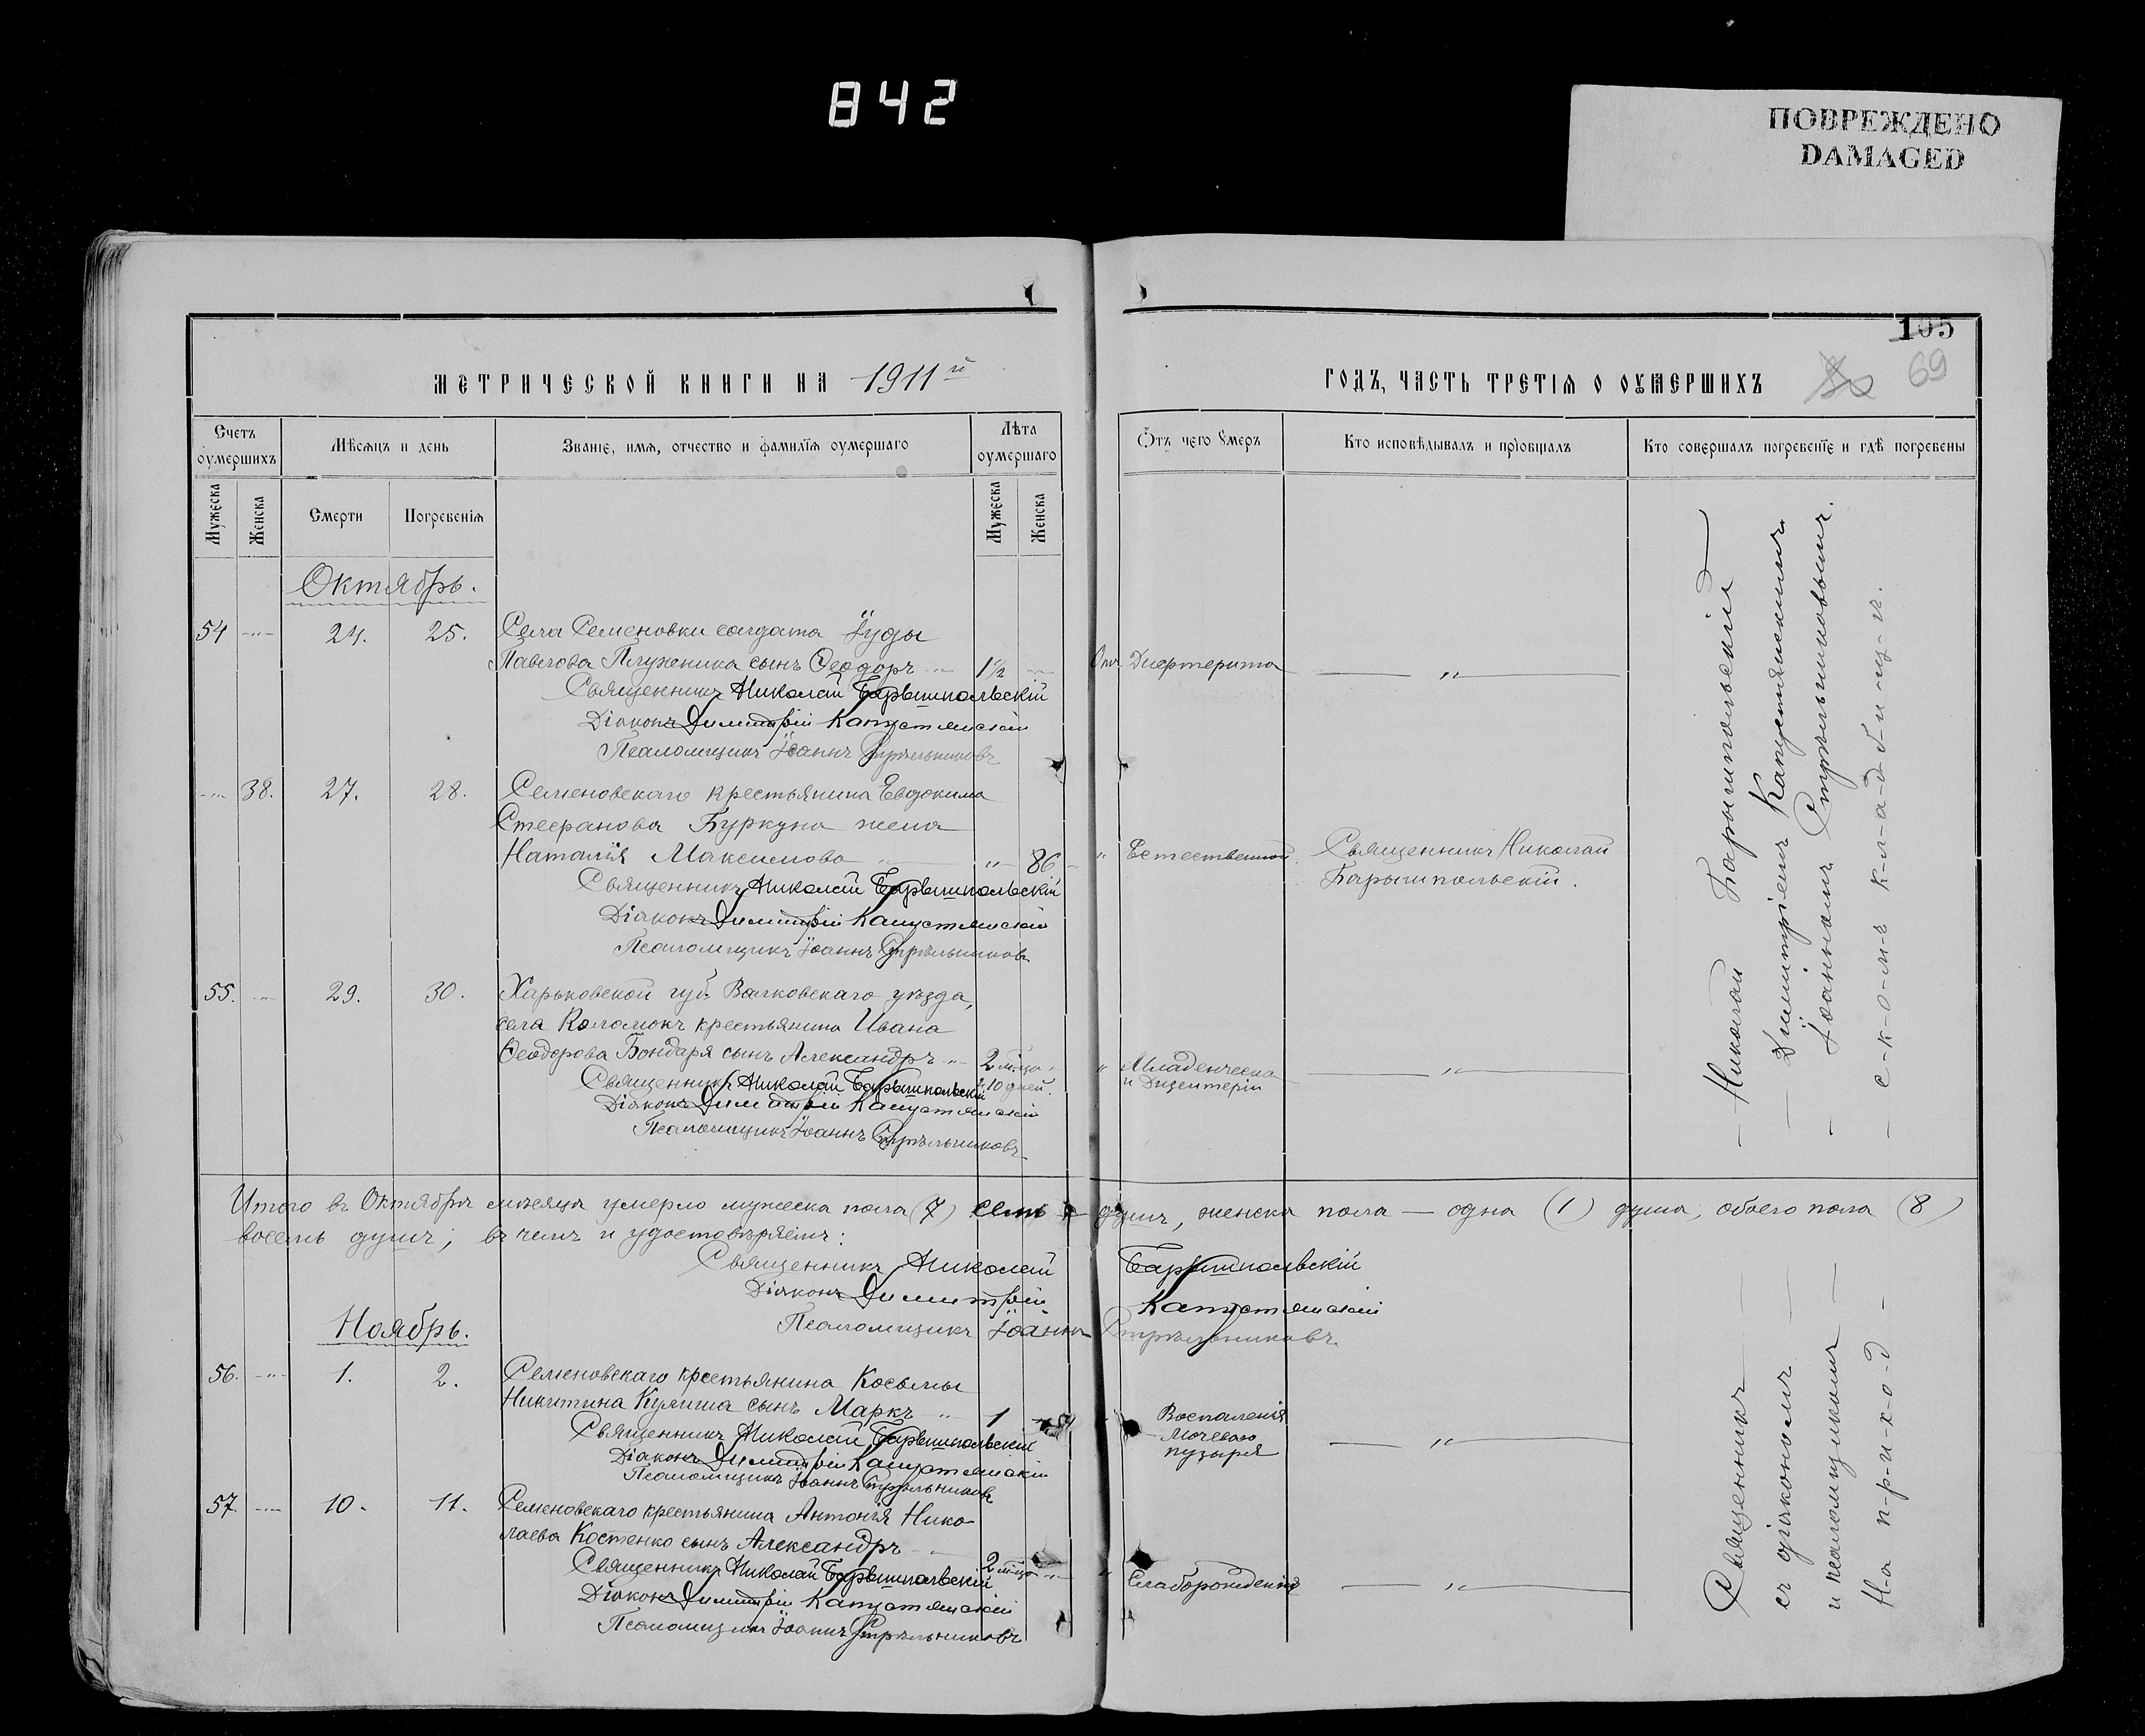 842
ПОВРЕЖДЕНО
DAMAGED
105
69
МЕТРИЧЕСКОЙ КНИГИ НА 1911й
ГОДЪ, ЧАСТЬ ТРЕТІЯ О ОУМЕРШИХЪ
Счетъ оумершихъ
Мѣсяцъ и день
Званіе, имя, отчество и фамилія оумершаго
Лѣта оумершаго
Отъ чего умеръ
Кто исповѣдывалъ и пріобщалъ
Кто совершалъ погребеніе и гдѣ погребены
Мужеска
Женска
Смерти
Погребенія
Мужеска
Женска
Октябрь.
54 -"- 24. 25. Села Семеновки солдата Іуды
Павлова Плуженика сынъ Ѳеодоръ -"- 1½ -"- Отъ Дифтерита — " —
Священникъ Николай Барышпольскій
Діаконъ Димитрій Капустянскій
Псаломщикъ Іоаннъ Стрѣльниковъ
-"- 38. 27. 28. Семеновскаго крестьянина Евдокима
Стефанова Буркуна жена
Наталія Максимова -"- " 86 " Естественной Священникъ Николай
Барышпольскій.
Священникъ Николай Барышпольскій
Діаконъ Димитрій Капустянскій
Псаломщикъ Іоаннъ Стрѣльниковъ
55. -"- 29. 30. Харьковской губ. Валковскаго уѣзда,
села Коломокъ крестьянина Ивана
Ѳеодорова Бондаря сынъ Александръ -"- 2 мѣсяца " Младенческа — " —
и 10 дней. и Дизентеріи
Священникъ Николай Барышпольскій
Діаконъ Димитрій Капустянскій
Псаломщикъ Іоаннъ Стрѣльниковъ
Итого въ Октябрѣ мѣсяцѣ умерло мужеска пола (7) семь душъ, женска пола — одна (1) душа, обоего пола (8)
восемь душъ; въ чемъ и удостовѣряемъ:
Священникъ Николай Барышпольскій
Діаконъ Димитрій Капустянскій
Псаломщикъ Іоаннъ Стрѣльниковъ.
Ноябрь.
56. -"- 1. 2. Семеновскаго крестьянина Косьмы
Никитина Кулиша сынъ Маркъ -"- 1 Воспаленія — " —
Мочеваго
пузыря
Священникъ Николай Барышпольскій
Діаконъ Димитрій Капустянскій
Псаломщикъ Іоаннъ Стрѣльниковъ
57. -"- 10. 11. Семеновскаго крестьянина Антонія Нико
лаева Костенко сынъ Александръ -"- 2 мѣсяца -"- " Слаборожденія — " —
Священникъ Николай Барышпольскій
Діаконъ Димитрій Капустянскій
Псаломщикъ Іоаннъ Стрѣльниковъ
Священникъ — Николай Барышпольскій —
съ діакономъ — Димитріемъ Капустянскимъ
и псаломщикомъ — Іоанномъ Стрѣльниковымъ.
На п-р-и-х-о-д - с-к-о-м-ъ к-л-а-д-б-и-щ-ѣ.